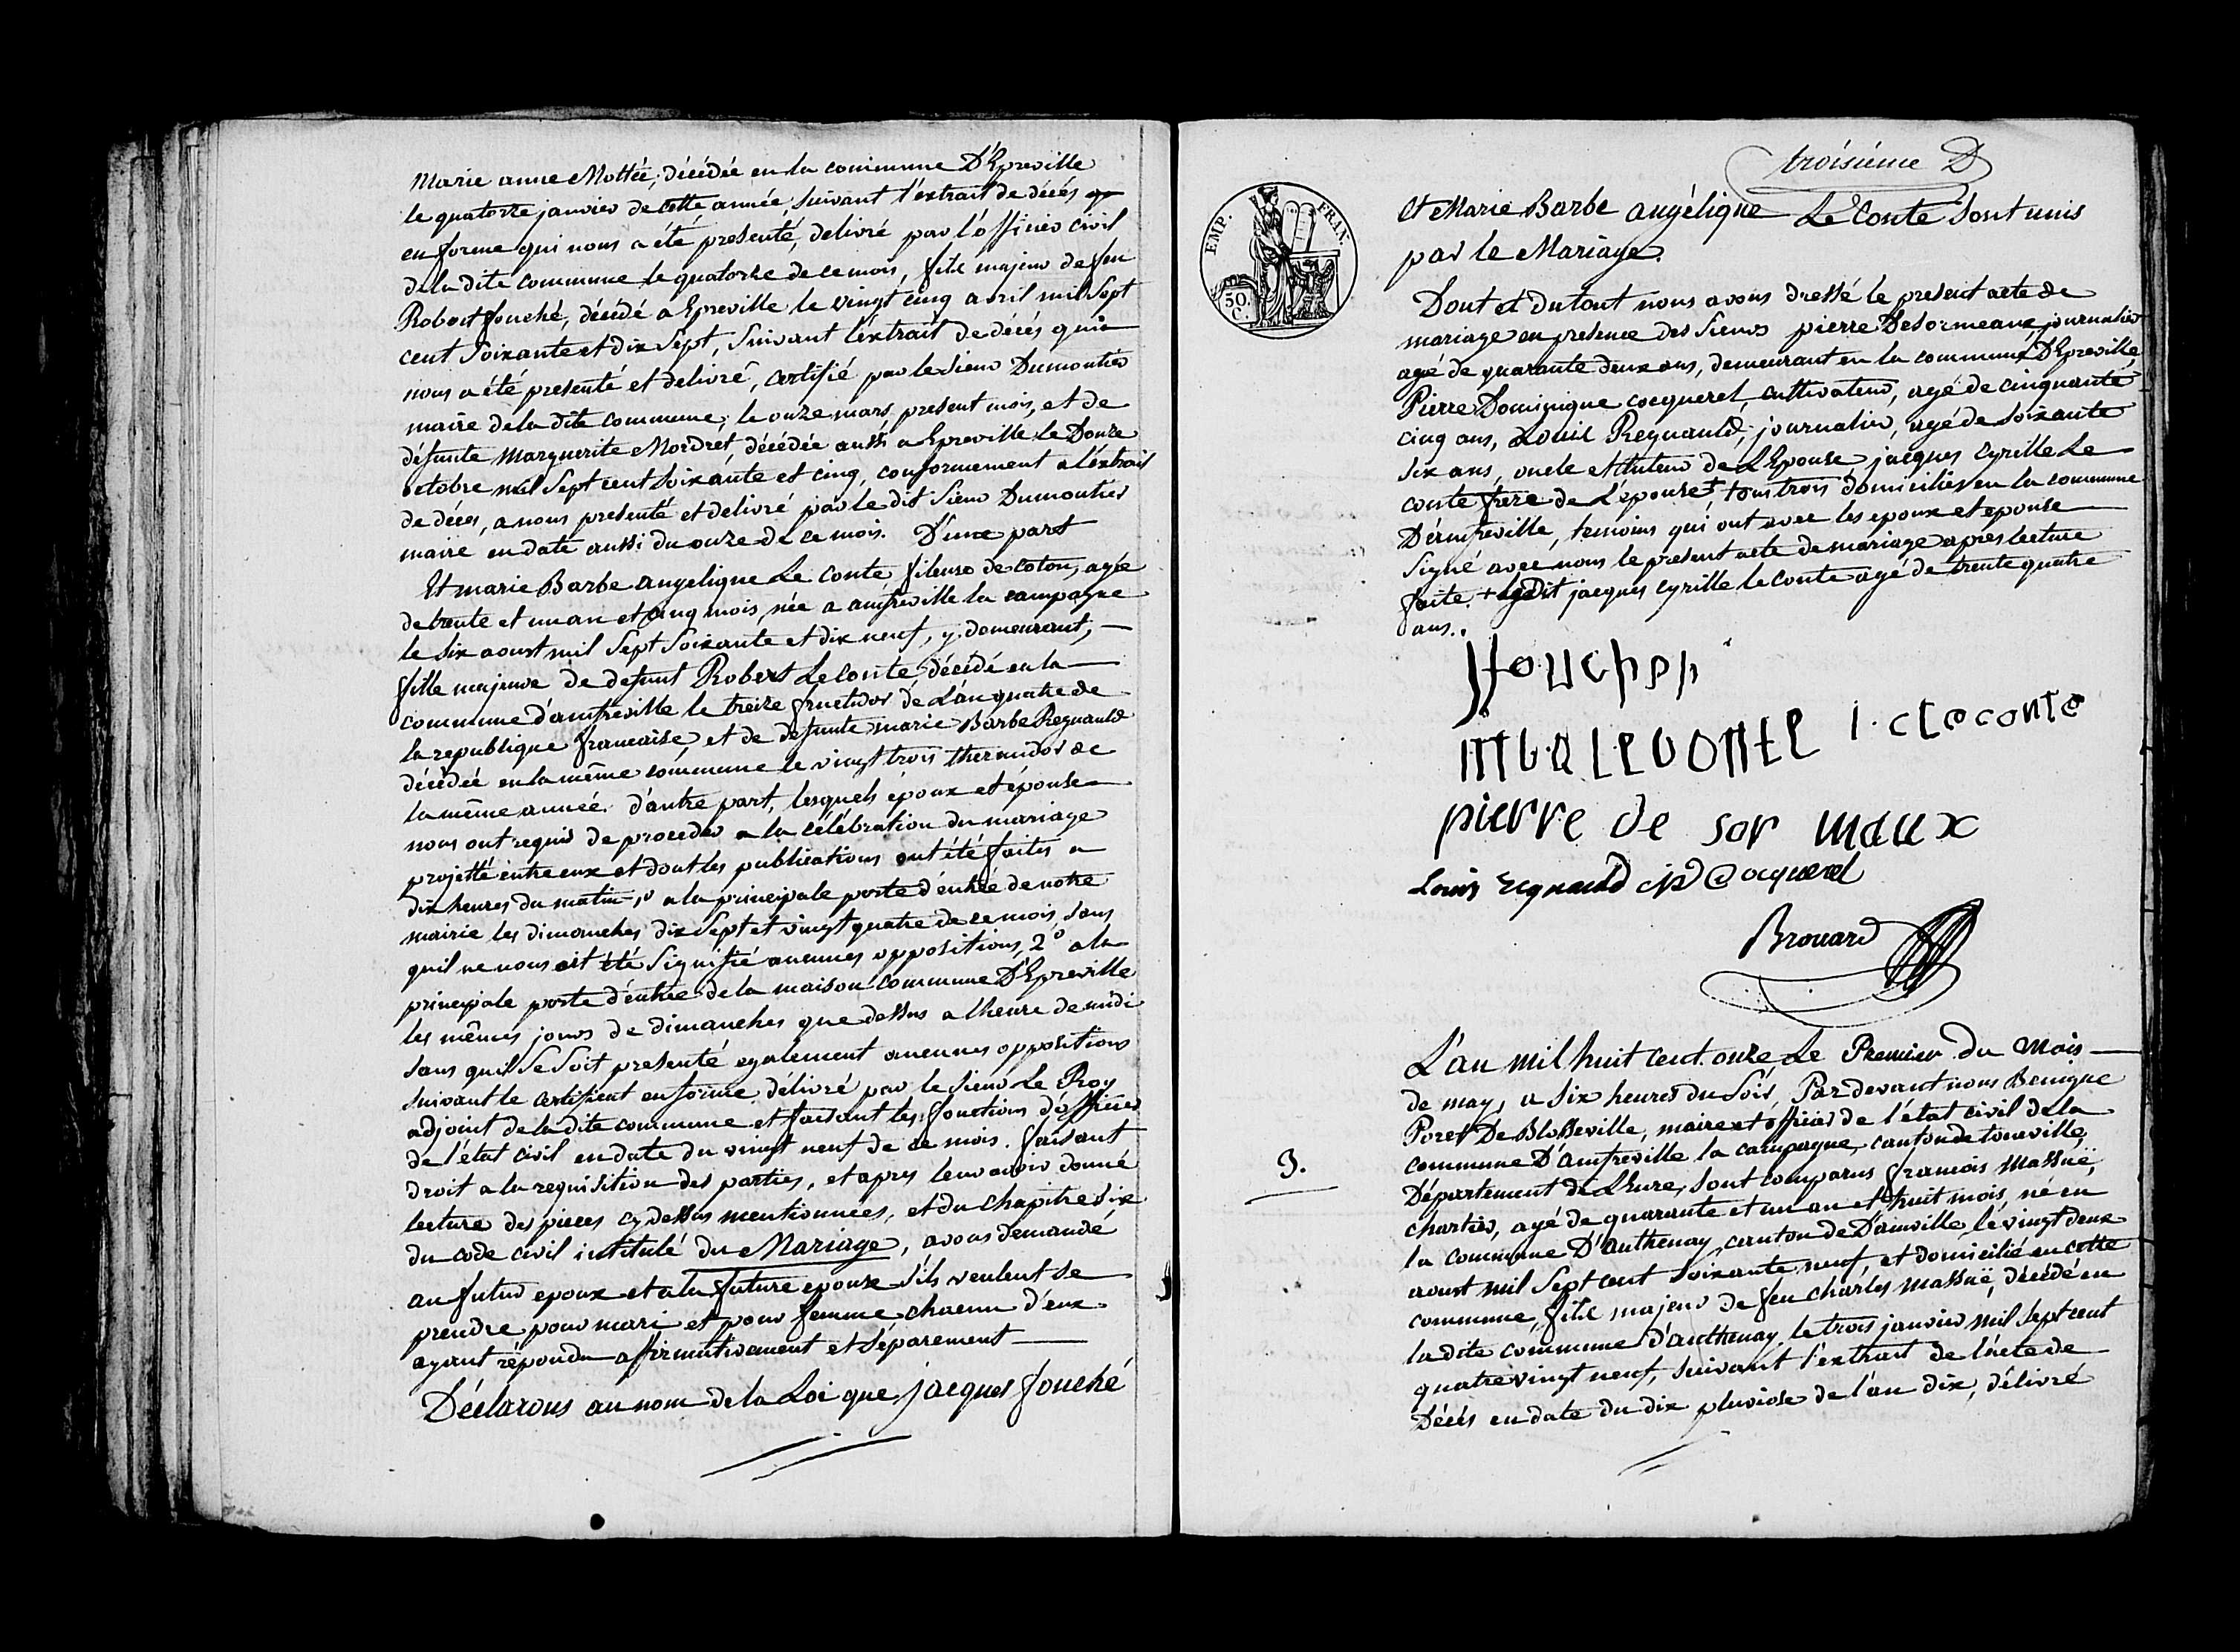 Marie anne Mottée, décédée en la commune D'Epreville
le quatorze janvier de cette année, suivant l'extrait de décés
en forme qui nous a été presenté, delivré par l'officier civil
de la dite commune le quatorze de ce mois, fils majeur de feu
Robert fouché, décédé a Epreville le vingt cinq avril mil sept
cent soixante et dix sept, suivant l'extrait de décés qui
nous a été presenté et delivré, certifié par le sieur Dumontier
maire de la dite commune, le onze mars present mois, et de
défunte Marguerite Mordret, décédée aussi a Epreville le Douze
octobre mil sept cent soixante et cinq, conformement a l'extrait
de décés, a nous presenté et delivré par le dit sieur Dumontier
maire en date aussi du onze de ce mois. D'une part
Et marie Barbe angelique Le Conte fileuse de coton, agée
de trente et un an et cinq mois, née a amfreville la campagne
le six aoust mil sept soixante et dix neuf, y demeurant,
fille majeure de defunt Robert Le Conte décédé en la
commune d'amfreville le treize fructidor de l'an quatre de
la republique francaise, et de defunte marie Barbe Regnauld
décédée en la même commune le vingt trois thermidor de
la même année. d'autre part, lesquels époux et épouse
nous ont requis de proceder a la célébration du mariage
projetté entre eux et dont les publications ont été faites a
dix heures du matin, 1° a la principale porte d'entrée de notre
mairie les dimanches dix sept et vingt quatre de ce mois, sans
quil ne nous ait été signifié aucunes oppositions, 2° a la
principale porte d'entrée de la maison commune D'Epreville
les mêmes jours de dimanches que dessus a lheure de midi
sans quil se soit presenté egalement aucunes oppositions
suivant le certificat en forme délivré par le sieur Le Roy
adjoint de la dite commune et faisant les fonctions d'officier
de l'état civil en date du vingt neuf de ce mois. faisant
droit a la requisition des parties, et apres leur avoir donné
lecture des pieces cy dessus mentionnées, et du chapitre six
du code civil intitulé du Mariage, avons demandé
au futur epoux et a la future epouse s'ils veulent se
prendre pour mari et pour femme chacun d'eux
ayant répondu affirmativement et séparement
Déclarons au nom de la Loi que jacques fouché
troisième
EMP. FRAN.
50. C.
et Marie Barbe angélique Le Conte sont unis
par le Mariage.
Dont et du tout nous avons dressé le present acte de
mariage en presence des sieurs pierre Desormeaux, journalier
agé de quarante deux ans, demeurant en la commune D'Epreville,
Pierre Dominique cocquerel, cultivateur, agé de cinquante
cinq ans, Louis Regnauld, journalier, agé de soixante
six ans, oncle et tuteur de L'Epouse, jacques Cyrille Le
conte frere de L'épouse + tous trois domiciliés en la commune
D'amfreville, temoins qui ont avec les epoux et epouse
signé avec nous le present acte de mariage apres lecture
faite. + le dit jacques cyrille le conte agé de trente quatre
ans.
mba leconte j. c leconte
pierre de sor maux
Louis regnauld Cocquerel
Brouard
3.
L'an mil huit cent onze Le Premier du Mois
de may, a six heures du soir, Pardevant nous Benigne
Poret De Blosseville, maire et officier de l'état civil de la
commune D'amfreville la campagne, canton de touville,
Département de L'Eure, sont comparus francois Massuë,
chartier, agé de quarante et un an et huit mois, né en
la commune D'authenay, canton de Damville, le vingt deux
aoust mil sept cent soixante neuf, et domicilié en cette
commune, fils majeur de feu charles massuë, décédé en
la dite commune d'authenay le trois janvier mil sept cent
quatre vingt neuf, suivant l'extrait de l'acte de
décés en date du dix pluviose de l'an dix, délivré